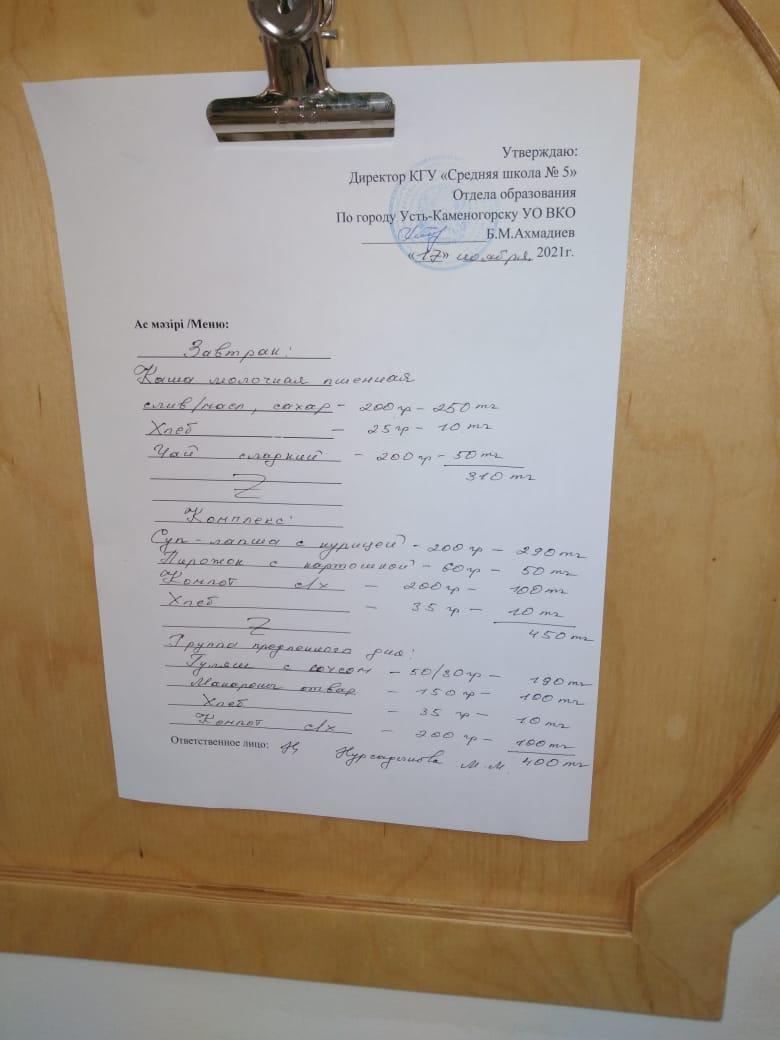 Утверждаю:
Директор КГУ «Средняя школа № 5»
Отдела образования
По городу Усть-Каменогорску УО ВКО
Б.М.Ахмадиев
«17» ноября 2021г.
Ас мәзірі /Меню:
Завтрак:
Каша молочная пшенная
слив/масл, сахар - 200 гр - 250 тг
Хлеб - 25 гр - 10 тг
Чай сладкий - 200 гр - 50 тг
310 тг
Комплекс:
Суп-лапша с курицей - 200 гр - 290 тг
Пирожок с картошкой - 60 гр - 50 тг
Компот с/х - 200 гр - 100 тг
Хлеб - 35 гр - 10 тг
450 тг
Группа продленного дня:
Гуляш с соусом - 50/30 гр - 190 тг
Макароны отвар - 150 гр - 100 тг
Хлеб - 35 гр - 10 тг
Компот с/х - 200 гр - 100 тг
Ответственное лицо: М.М. 400 тг